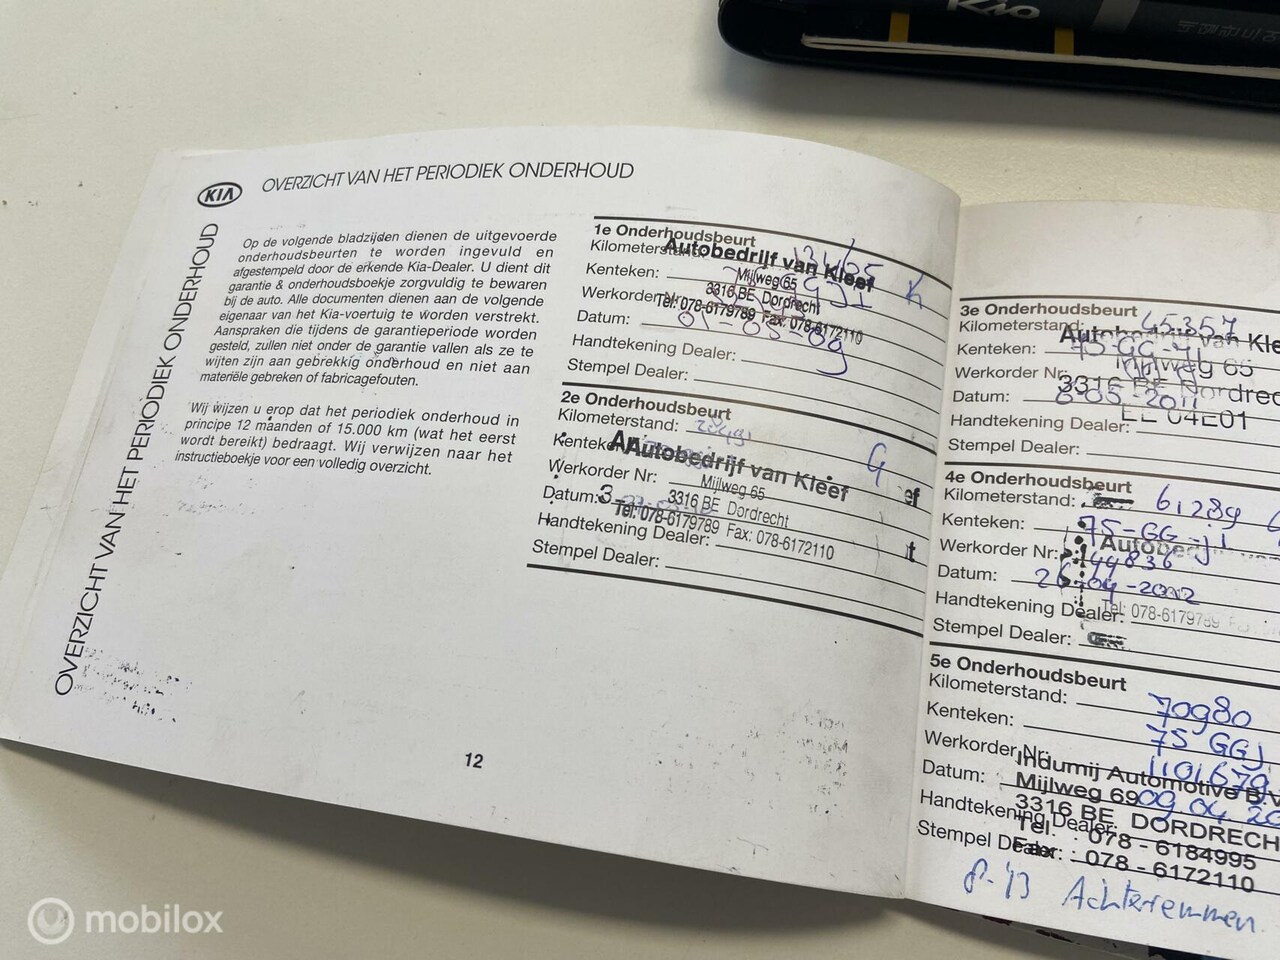 Kia
KIA
OVERZICHT VAN HET PERIODIEK ONDERHOUD
OVERZICHT VAN HET PERIODIEK ONDERHOUD
Op de volgende bladzijden dienen de uitgevoerde
onderhoudsbeurten te worden ingevuld en
afgestempeld door de erkende Kia-Dealer. U dient dit
garantie & onderhoudsboekje zorgvuldig te bewaren
bij de auto. Alle documenten dienen aan de volgende
eigenaar van het Kia-voertuig te worden verstrekt.
Aanspraken die tijdens de garantieperiode worden
gesteld, zullen niet onder de garantie vallen als ze te
wijten zijn aan gebrekkig onderhoud en niet aan
materiële gebreken of fabricagefouten.
Wij wijzen u erop dat het periodiek onderhoud in
principe 12 maanden of 15.000 km (wat het eerst
wordt bereikt) bedraagt. Wij verwijzen naar het
instructieboekje voor een volledig overzicht.
12
1e Onderhoudsbeurt
Kilometerstand:
Autobedrijf van Kleef
Kenteken:
Mijlweg 65
Werkorder Nr:
3316 BE Dordrecht
Tel: 078-6179789 Fax: 078-6172110
Datum: 01-05-09
Handtekening Dealer:
Stempel Dealer:
2e Onderhoudsbeurt
Kilometerstand:
Kenteken:
Autobedrijf van Kleef
Werkorder Nr:
Mijlweg 65
Datum:
3316 BE Dordrecht
Tel: 078-6179789 Fax: 078-6172110
Handtekening Dealer:
Stempel Dealer:
3e Onderhoudsbeurt
Kilometerstand: 45357
Kenteken: 75-GG-JL
Mijlweg 65
Werkorder Nr:
3316 BE Dordrec
Datum:
EL 04E01
Handtekening Dealer:
Stempel Dealer:
4e Onderhoudsbeurt
Kilometerstand: 61289
Kenteken: 75-GG-jl
Werkorder Nr: 144836
Datum: 26-04-2012
Handtekening Dealer:
Tel: 078-6179789
Stempel Dealer:
5e Onderhoudsbeurt
Kilometerstand: 70980
Kenteken: 75 GGJ
Werkorder Nr: 1101679
Indumij Automotive B.V
Datum: 09 04 20
Mijlweg 69
3316 BE DORDRECH
Handtekening Dealer:
Tel. : 078 - 6184995
Stempel Dealer:
Fax : 078 - 6172110
8-'13 Achterremmen
mobilox